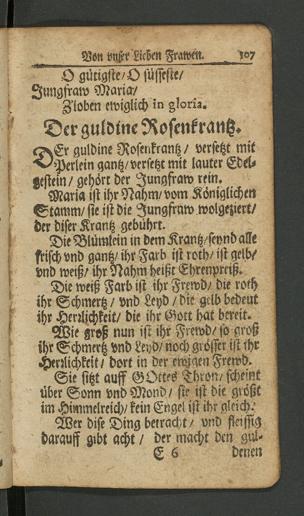 Von vnser Lieben Frawen. 107
O gütigste/ O süsseste/
Jungfraw Maria/
Zloben ewiglich in gloria.
Der guldine Rosenkrantz.
DEr guldine Rosenkrantz/ versetzt mit
Perlein gantz/ versetzt mit lauter Edel-
gestein/ gehört der Jungfraw rein.
Maria ist ihr Nahm/ vom Königlichen
Stamm/ sie ist die Jungfraw wolgeziert/
der diser Krantz gebührt.
Die Blümlein in dem Krantz/ seynd alle
frisch vnd gantz/ ihr Farb ist roth/ ist gelb/
vnd weiß/ ihr Nahm heißt Ehrenpreiß.
Die weiß Farb ist ihr Frewd/ die roth
ihr Schmertz/ vnd Leyd/ die gelb bedeut
ihr Herzlichkeit/ die ihr Gott hat bereit.
Wie groß nun ist ihr Frewd/ so groß
ihr Schmertz vnd Leyd/ noch grösser ist ihr
Herzlichkeit/ dort in der ewigen Frewd.
Sie sitzt auff GOttes Thron/ scheint
über Sonn vnd Mond/ sie ist die größt
im Himmelreich/ kein Engel ist ihr gleich.
Wer dise Ding betracht/ vnd fleissig
darauff gibt acht/ der macht den gul-
E 6 denen